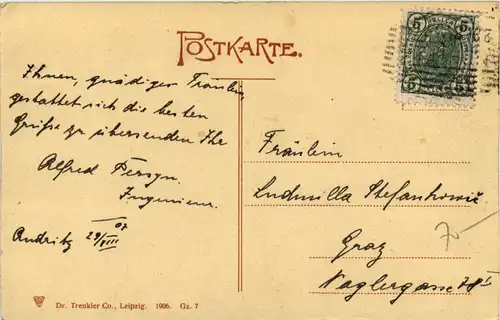 POSTKARTE.
5 5
5 5
Ihnen, gnädiges Fräulein,
gestattet sich die besten
Grüße zu übersenden Ihr
Alfred
Ingenieur.
Andritz 29/VIII 07
Fräulein
Ludmilla Stefankowič
Graz
Naglergasse 78 I
70
Dr. Trenkler Co., Leipzig. 1906. Gz. 7